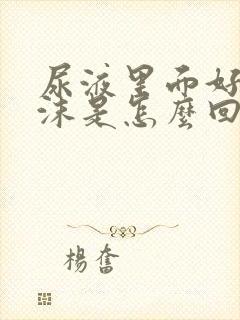 尿液里而好
沫是怎麼回
楊奮